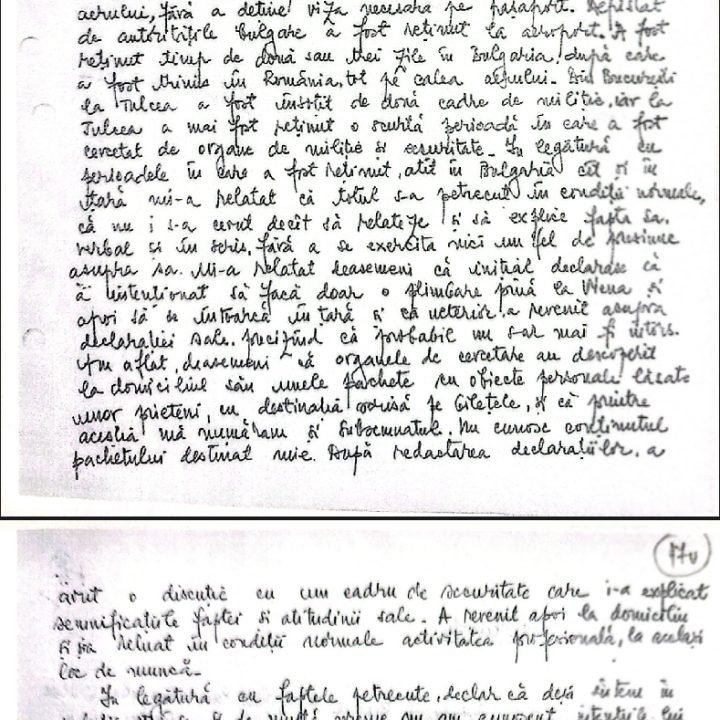 aerului, fără a deține viza necesară pe pașaport. Depistat
de autoritățile bulgare a fost reținut la aeroport. A fost
reținut timp de două sau trei zile în Bulgaria, după care
a fost trimis în România, tot pe calea aerului. Din București
la Tulcea a fost însoțit de două cadre de miliție, iar la
Tulcea a mai fost reținut o scurtă perioadă în care a fost
cercetat de organe de miliție și securitate. In legătură cu
perioadele în care a fost reținut, atît în Bulgaria cît și în
țară mi-a relatat că totul s-a petrecut în condiții normale,
că nu i s-a cerut decît să relateze și să explice fapta sa,
verbal și în scris, fără a se exercita nici un fel de presiune
asupra sa. Mi-a relatat deasemeni că inițial declarase că
a intenționat să facă doar o plimbare pînă la Viena și
apoi să se întoarcă în țară și că ulterior a revenit asupra
declarației sale, precizînd că probabil nu s-ar mai fi întors.
Am aflat, deasemeni că organele de cercetare au descoperit
la domiciliul său unele pachete cu obiecte personale lăsate
unor prieteni, cu destinația scrisă pe bilețele, și că printre
aceștia mă număram și subsemnatul. Nu cunosc conținutul
pachetului destinat mie. După redactarea declarațiilor, a
17v
avut o discuție cu un cadru de securitate care i-a explicat
semnificațiile faptei și atitudinii sale. A revenit apoi la domiciliu
și și-a reluat în condiții normale activitatea profesională, la același
loc de muncă.
In legătură cu faptele petrecute, declar că deși sîntem în
de multă vreme nu am cunoscut intențiile lui